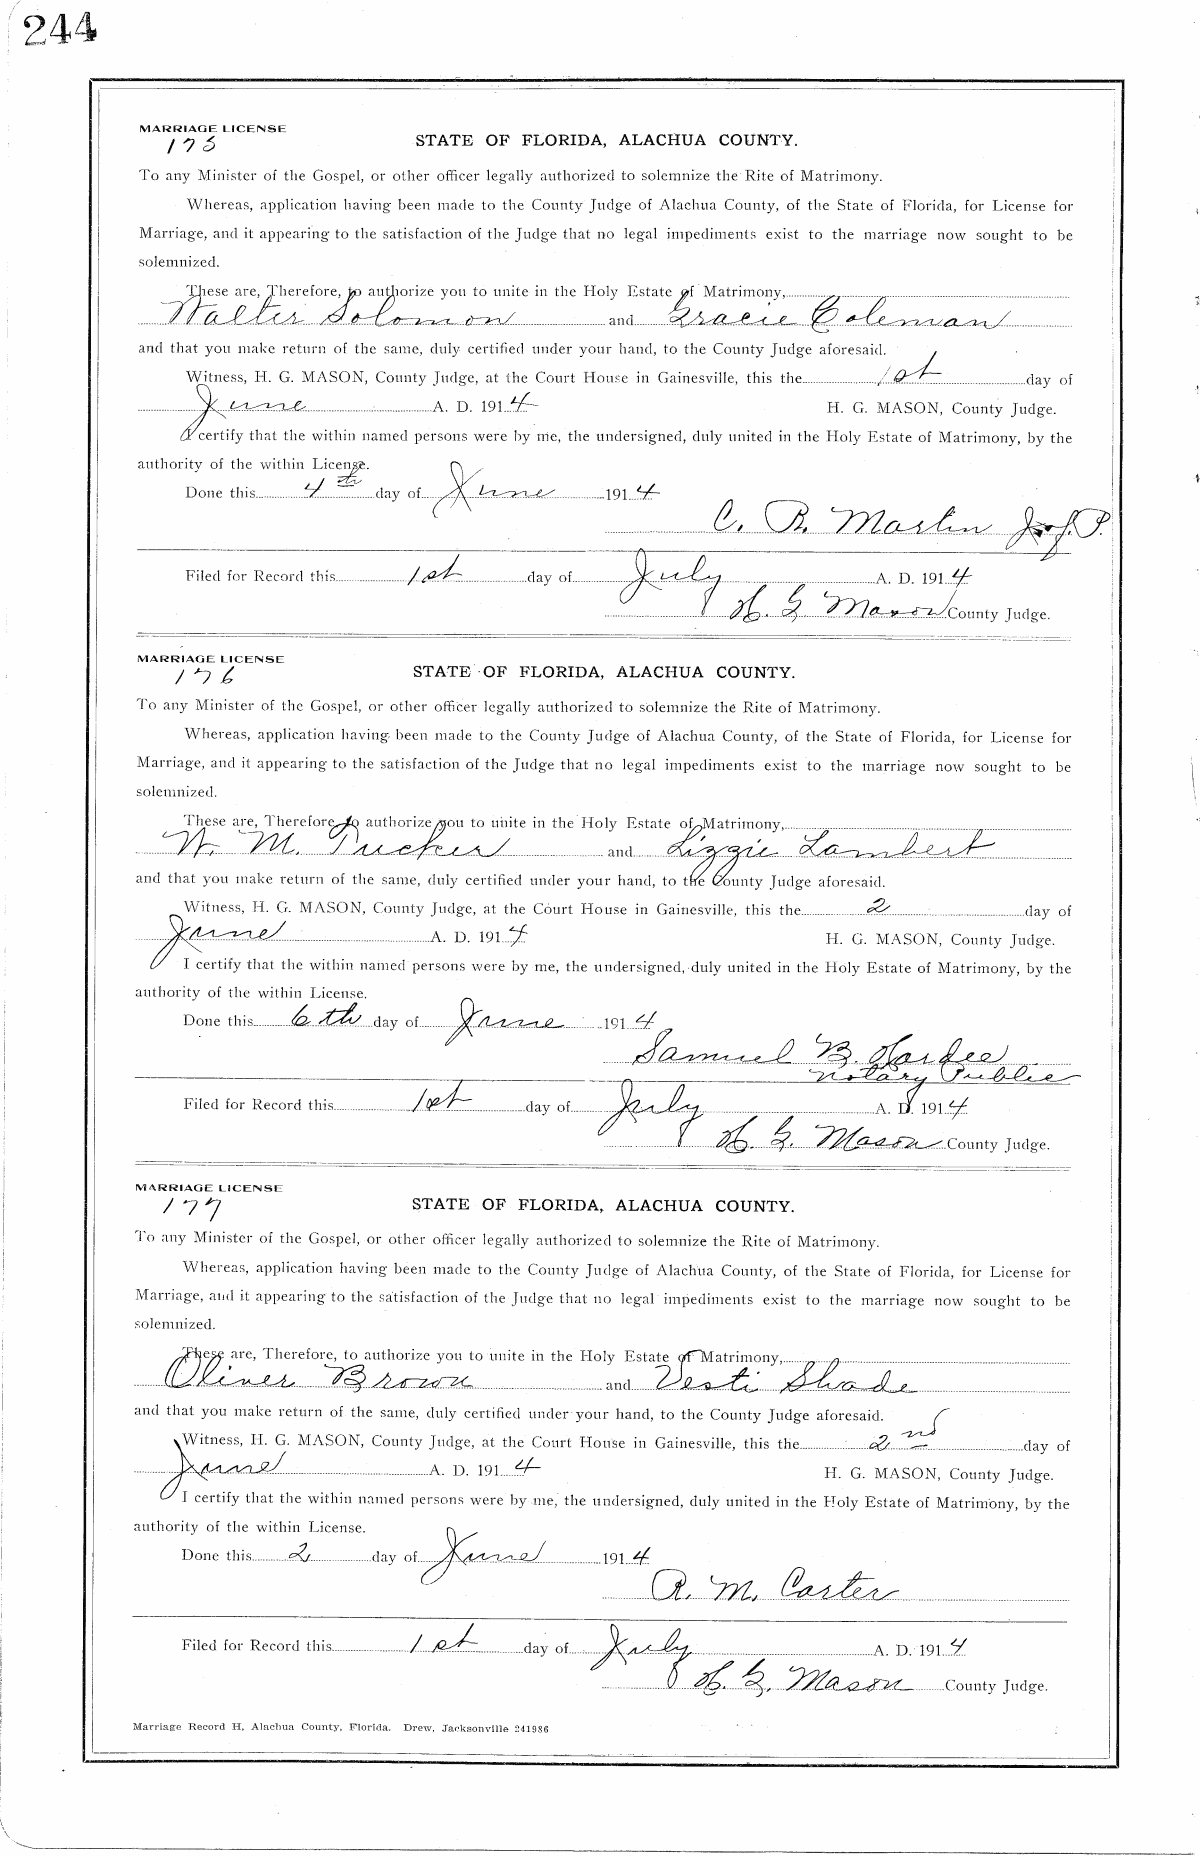 244
MARRIAGE LICENSE
175
STATE OF FLORIDA, ALACHUA COUNTY.
To any Minister of the Gospel, or other officer legally authorized to solemnize the Rite of Matrimony.
Whereas, application having been made to the County Judge of Alachua County, of the State of Florida, for License for
Marriage, and it appearing to the satisfaction of the Judge that no legal impediments exist to the marriage now sought to be
solemnized.
These are, Therefore, to authorize you to unite in the Holy Estate of Matrimony,
Walter Solomon and Gracie Coleman
and that you make return of the same, duly certified under your hand, to the County Judge aforesaid.
Witness, H. G. MASON, County Judge, at the Court House in Gainesville, this the 1st day of
June A. D. 1914 H. G. MASON, County Judge.
I certify that the within named persons were by me, the undersigned, duly united in the Holy Estate of Matrimony, by the
authority of the within License.
Done this 4th day of June 1914
C. B. Martin J. of P.
Filed for Record this 1st day of July A. D. 1914
H. G Mason County Judge.
MARRIAGE LICENSE
176
STATE OF FLORIDA, ALACHUA COUNTY.
To any Minister of the Gospel, or other officer legally authorized to solemnize the Rite of Matrimony.
Whereas, application having been made to the County Judge of Alachua County, of the State of Florida, for License for
Marriage, and it appearing to the satisfaction of the Judge that no legal impediments exist to the marriage now sought to be
solemnized.
These are, Therefore, to authorize you to unite in the Holy Estate of Matrimony,
W. M. Tucker and Lizzie Lambert
and that you make return of the same, duly certified under your hand, to the County Judge aforesaid.
Witness, H. G. MASON, County Judge, at the Court House in Gainesville, this the 2 day of
June A. D. 1914 H. G. MASON, County Judge.
I certify that the within named persons were by me, the undersigned, duly united in the Holy Estate of Matrimony, by the
authority of the within License.
Done this 6th day of June 1914
Samuel B. Hardee
Notary Public
Filed for Record this 1st day of July A. D. 1914
H. G. Mason County Judge.
MARRIAGE LICENSE
177
STATE OF FLORIDA, ALACHUA COUNTY.
To any Minister of the Gospel, or other officer legally authorized to solemnize the Rite of Matrimony.
Whereas, application having been made to the County Judge of Alachua County, of the State of Florida, for License for
Marriage, and it appearing to the satisfaction of the Judge that no legal impediments exist to the marriage now sought to be
solemnized.
These are, Therefore, to authorize you to unite in the Holy Estate of Matrimony,
Oliver Brown and Vesti Shade
and that you make return of the same, duly certified under your hand, to the County Judge aforesaid.
Witness, H. G. MASON, County Judge, at the Court House in Gainesville, this the 2nd day of
June A. D. 1914 H. G. MASON, County Judge.
I certify that the within named persons were by me, the undersigned, duly united in the Holy Estate of Matrimony, by the
authority of the within License.
Done this 2 day of June 1914
R. M. Carter
Filed for Record this 1st day of July A. D. 1914
H. G. Mason County Judge.
Marriage Record H, Alachua County, Florida. Drew, Jacksonville 241986